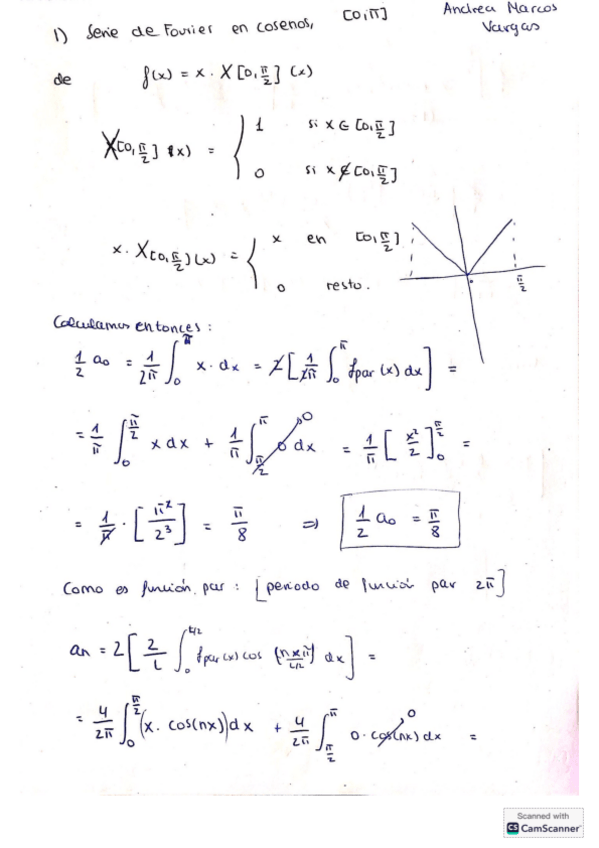 Andrea Marcos
Vargas
1) Serie de Fourier en cosenos, [0,π]
de f(x) = x · X[0,π/2](x)
X[0,π/2](x) = { 1 si x ∈ [0,π/2]
0 si x ∉ [0,π/2]
x · X[0,π/2](x) = { x en [0,π/2]
0 resto.
π/2
Calculamos entonces:
1/2 a₀ = 1/2π ∫₀^π x · dx = 2[1/2π ∫₀^π fpar(x) dx] =
= 1/π ∫₀^(π/2) x dx + 1/π ∫_(π/2)^π 0 dx → 0 = 1/π [x²/2]₀^(π/2) =
= 1/π · [π²/2³] = π/8 ⇒ 1/2 a₀ = π/8
Como es función par: [periodo de función par 2π]
an = 2[2/L ∫₀^(L/2) fpar(x) cos (nxπ/L/2) dx] =
= 4/2π ∫₀^(π/2) (x · cos(nx)) dx + 4/2π ∫_(π/2)^π 0 · cos(nx) dx → 0 =
Scanned with
CS CamScanner